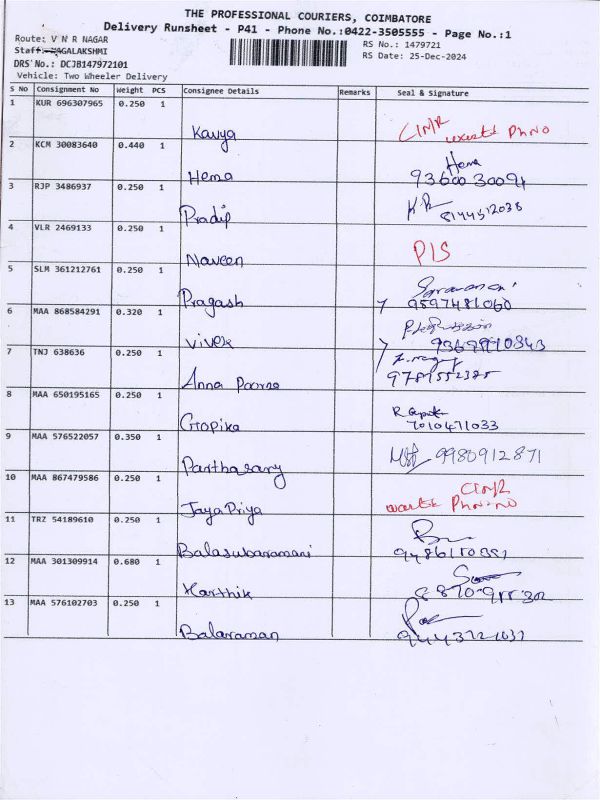 THE PROFESSIONAL COURIERS, COIMBATORE
Delivery Runsheet - P41 - Phone No.:0422-3505555 - Page No.:1
Route: V N R NAGAR
RS No.: 1479721
Staff: NAGALAKSHMI
RS Date: 25-Dec-2024
DRS No.: DCJB147972101
Vehicle: Two Wheeler Delivery
S No Consignment No Weight PCS Consignee Details Remarks Seal & Signature
1 KUR 696307965 0.250 1
Kavya
2 KCM 30083640 0.440 1
Hema
Hema
9360030094
3 RJP 3486937 0.250 1
Pradip
8144512038
4 VLR 2469133 0.250 1
Naveen
5 SLM 361212761 0.250 1
Pragash
9597481060
6 MAA 868584291 0.320 1
Vivek
7 TNJ 638636 0.250 1
Anna Poorna
8 MAA 650195165 0.250 1
Gopika
7010471033
9 MAA 576522057 0.350 1
Parthasary
9980912871
10 MAA 867479586 0.250 1
JayaPriya
11 TRZ 54189610 0.250 1
Balasubaramani
12 MAA 301309914 0.680 1
Karthik
13 MAA 576102703 0.250 1
Balaraman